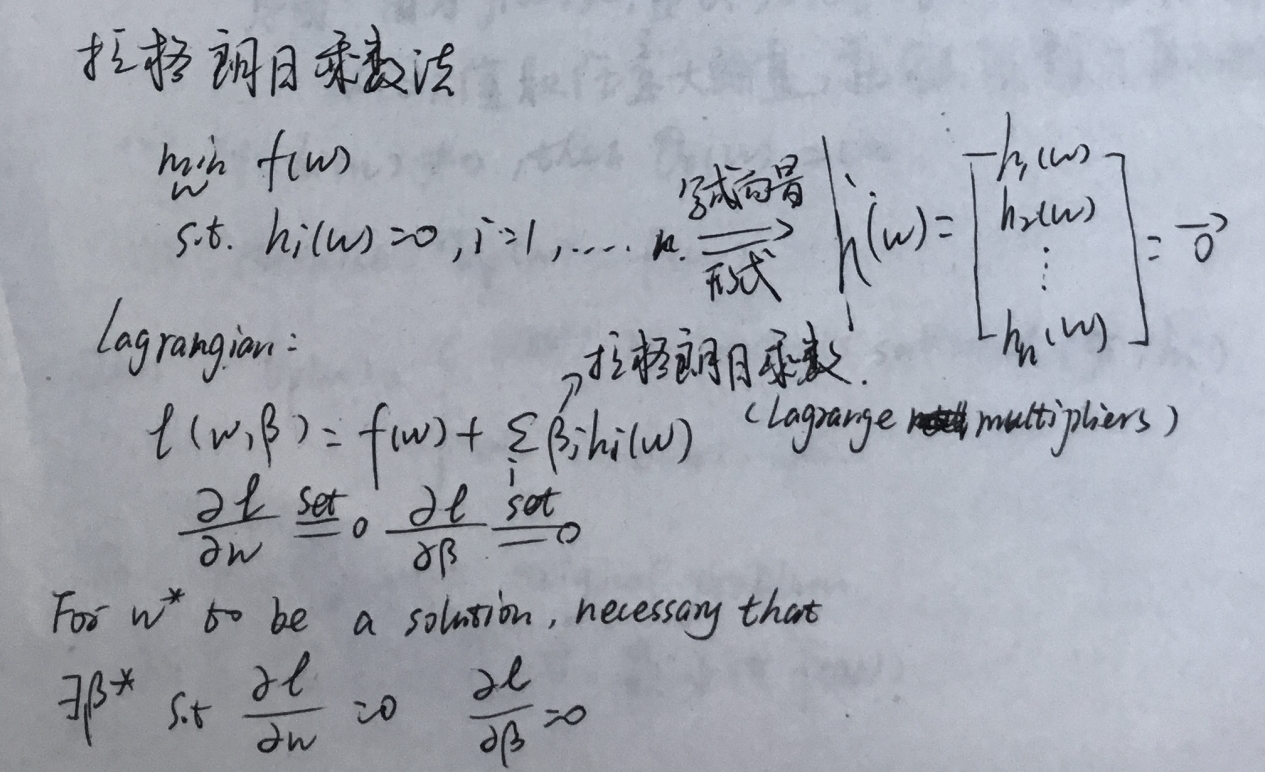 拉格朗日乘数法
min f(w)
w
s.t. hi(w)=0, i=1, ..... n. 写成向量 形式 ⟹ h(w) = [h₁(w) h₂(w) ⋮ hₙ(w)] = 0⃗
Lagrangian:
→拉格朗日乘数.
ℓ(w,β) = f(w) + Σᵢ βᵢhᵢ(w) (Lagrange multipliers)
∂ℓ/∂w set= 0 ∂ℓ/∂β set= 0
For w* to be a solution, necessary that
∃β* s.t ∂ℓ/∂w =0 ∂ℓ/∂β =0